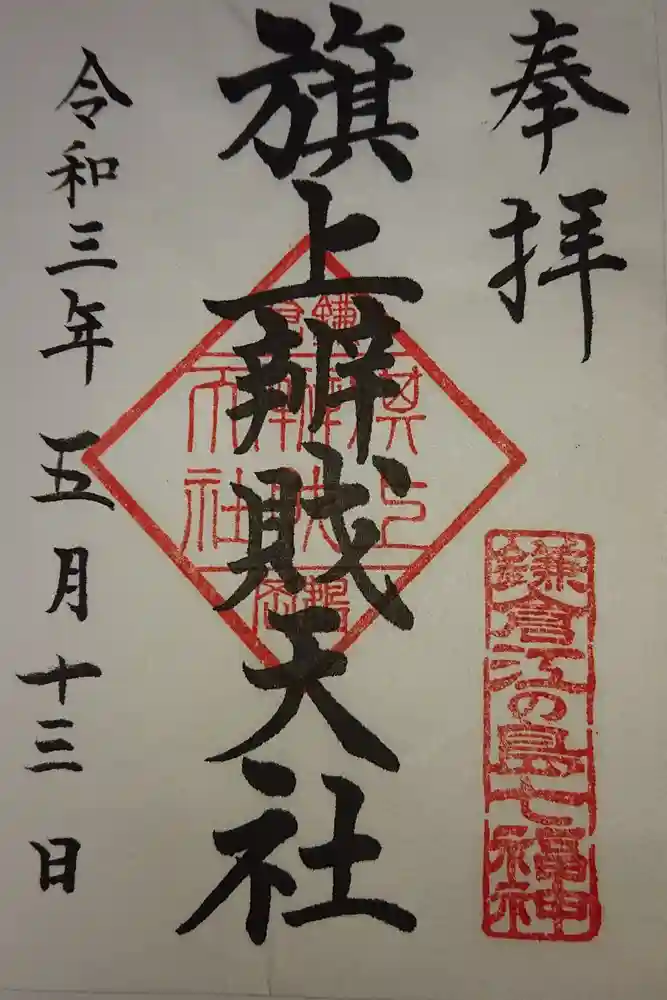 奉拝
鎌倉江の島七福神
旗上辨財天社
令和三年 五月十三日